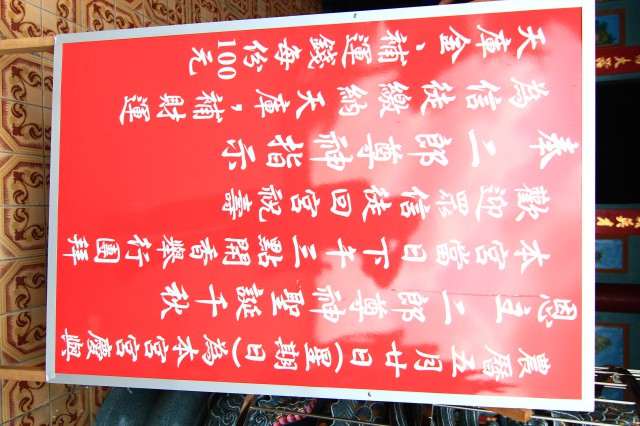 農曆五月廿日(星期日)為本宮宮慶與
恩主二郎尊神聖誕千秋
本宮當日下午三點開香舉行團拜
歡迎眾信徒回宮祝壽
奉二郎尊神指示
為信徒繳納天庫,補財運
天庫金、補運錢每份100元